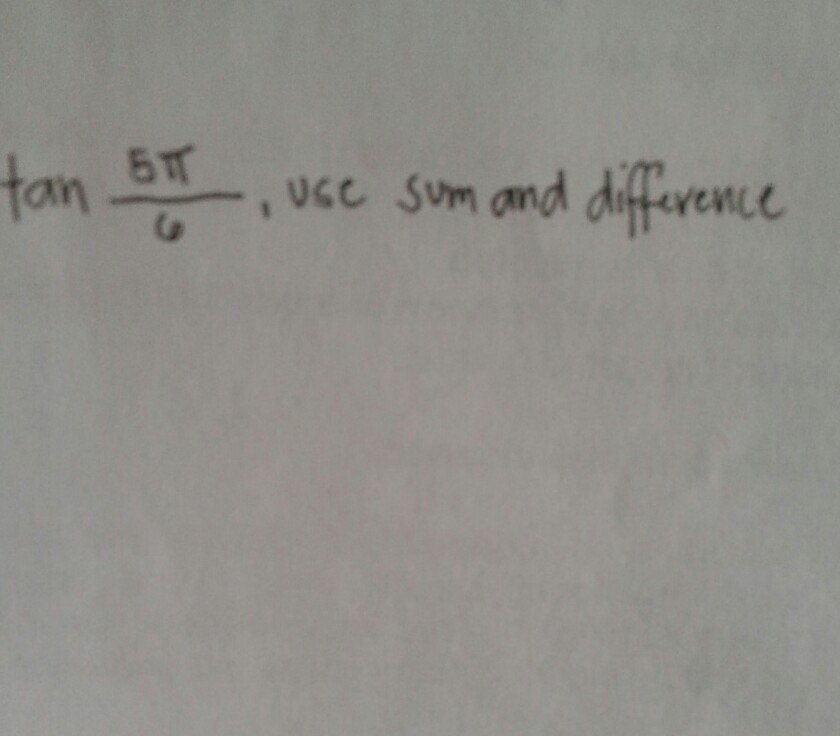 tan 5π/6, use sum and difference